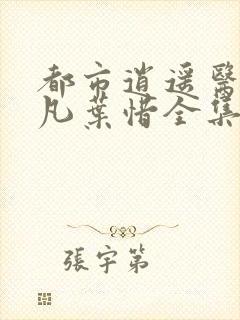 都市逍遥醫
凡葉惜全集
張宇第